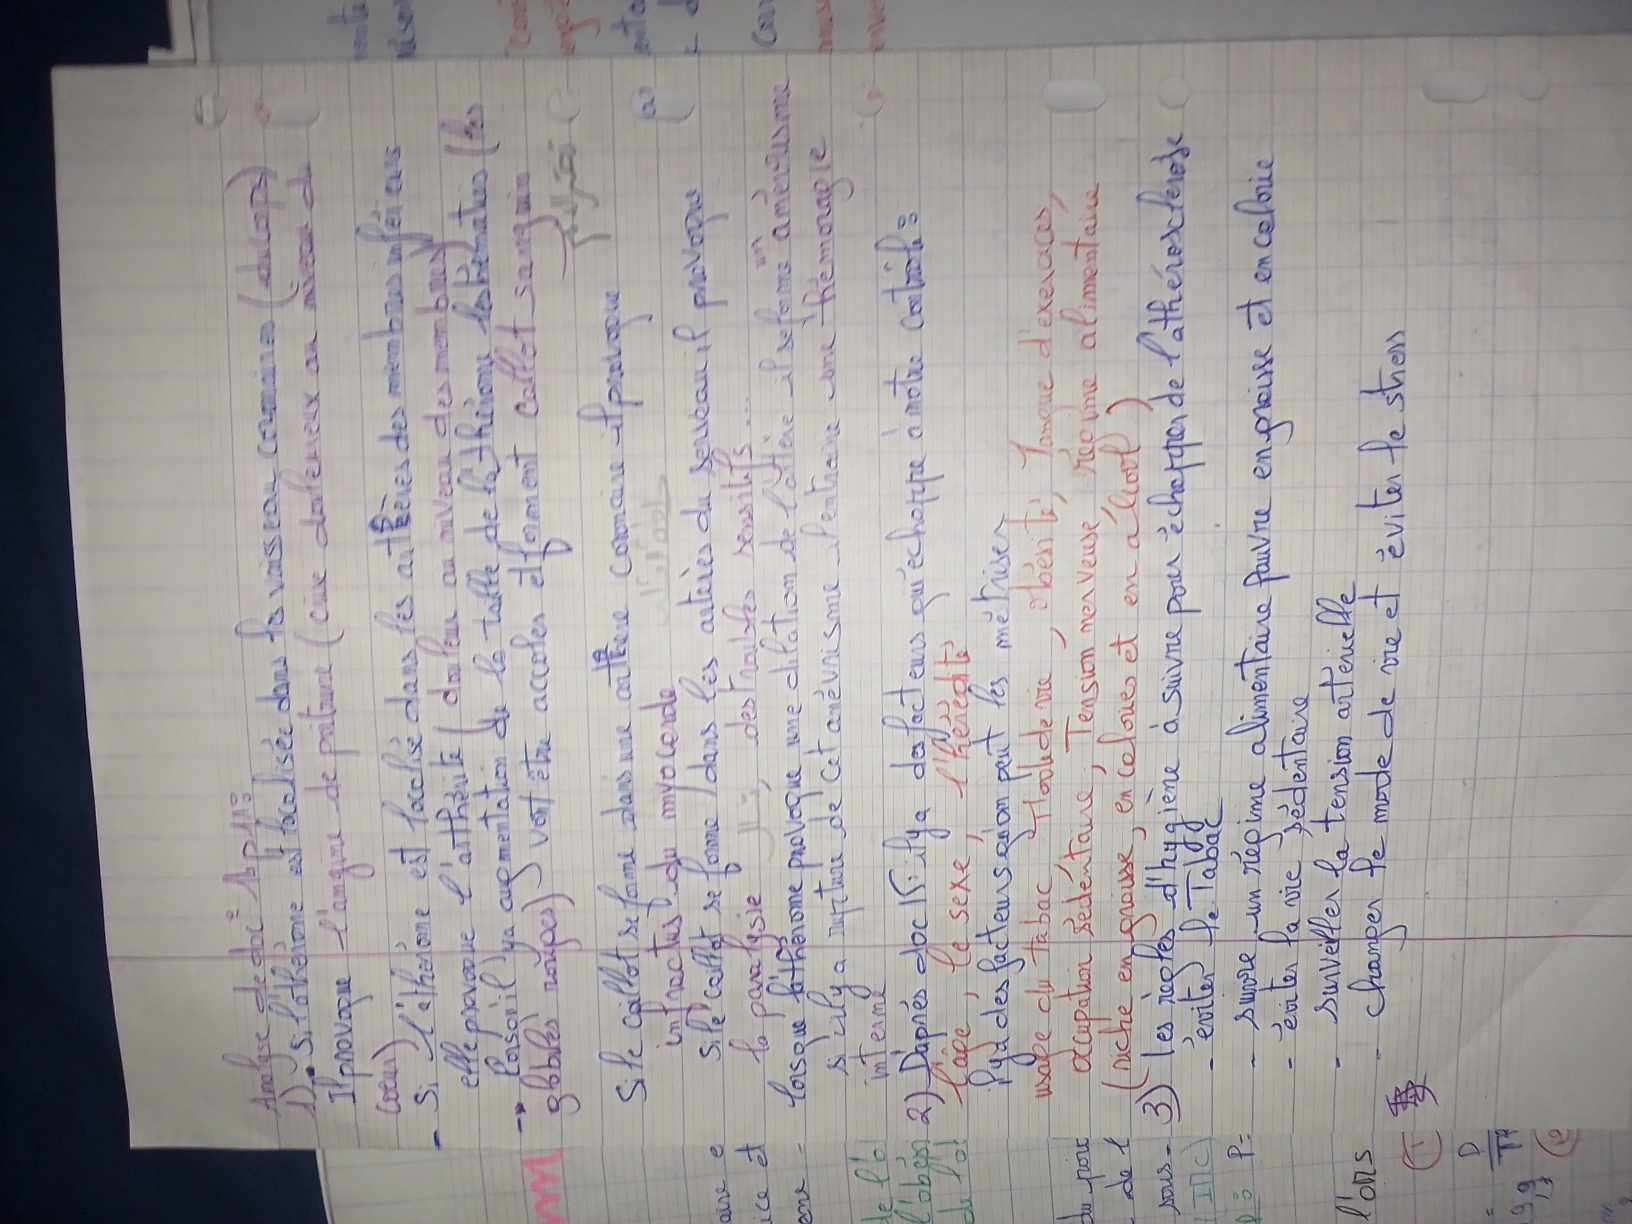 Analyse de doc 16 p 11:
1). Si l'athérome est localisée dans les vaisseau coronaires (du corps)
Il provoque l'angine de poitrine ( douloureux au niveau du
coeur)
- Si l'athérome est localisé dans les artères des membres inférieurs
elle provoque l'arthérite (douleur au niveau des membres)
- lorsqu'il ya augmentation de la taille de l'athérome les hématies (les
globules rouges) vont être accoler et forment caillot sanguin
Si le caillot se forme dans une artère coronaire il provoque
infractus du myocarde
Si le caillot se forme dans les artères du serveau il provoque
la paralysie , des troubles sensitifs...
- lorsque l'athérome provoque une dilation de l'artère il se forme un anévrisme
s'il y a rupture de cet anévrisme l'entraine une hémoragie
interne
2) D'après doc 15: il y a des facteurs qui échappe à notre contrôle:
l'âge, le sexe, l'hérédité
Il y a des facteurs qu'on peut les métriser
usage du tabac, Mode de vie, obésité, Manque d'exercices,
occupation sédentaire, Tension nerveuse, régime alimentaire
(riche en graisse, en calories et en alcool)
3) les règles d'hygiène à suivre pour échapper de l'athérosclérose
- éviter le Tabac
- suivre un régime alimentaire pauvre en graisse et en calorie
- éviter la vie sédentaire
- surveiller la tension artérielle
- changer le mode de vie et éviter le stress